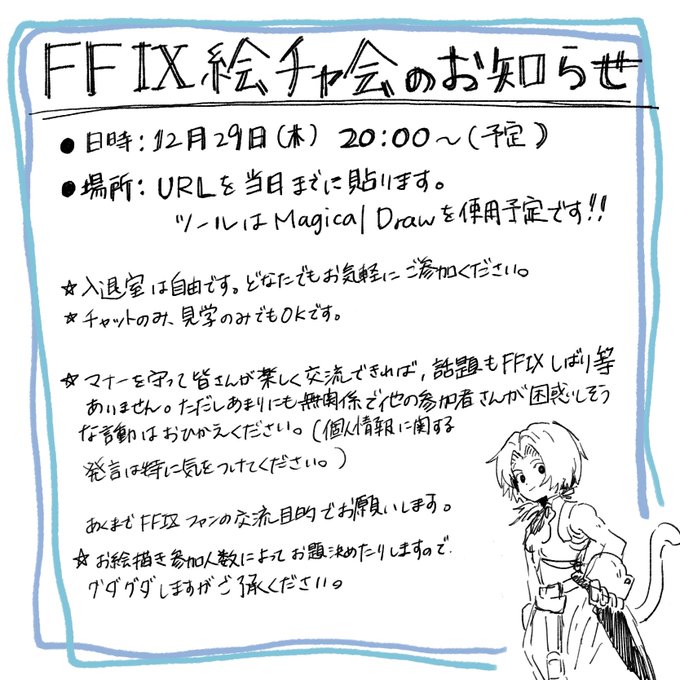 FFIX絵チャ会のお知らせ
●日時：12月29日(木) 20:00〜(予定)
●場所：URLを当日までに貼ります。
ツールはMagical Drawを使用予定です!!
☆入退室は自由です。どなたでもお気軽にご参加ください。
☆チャットのみ、見学のみでもOKです。
☆マナーを守って皆さんが楽しく交流できれば，話題もFFIXしばり等
ありません。ただしあまりにも無関係で他の参加者さんが困惑しそう
な言動はおひかえください。(個人情報に関する
発言は特に気をつけてください。)
あくまでFFIXファンの交流目的でお願いします。
☆お絵描き参加人数によってお題決めたりしますので
グダグダしますがご了承ください。